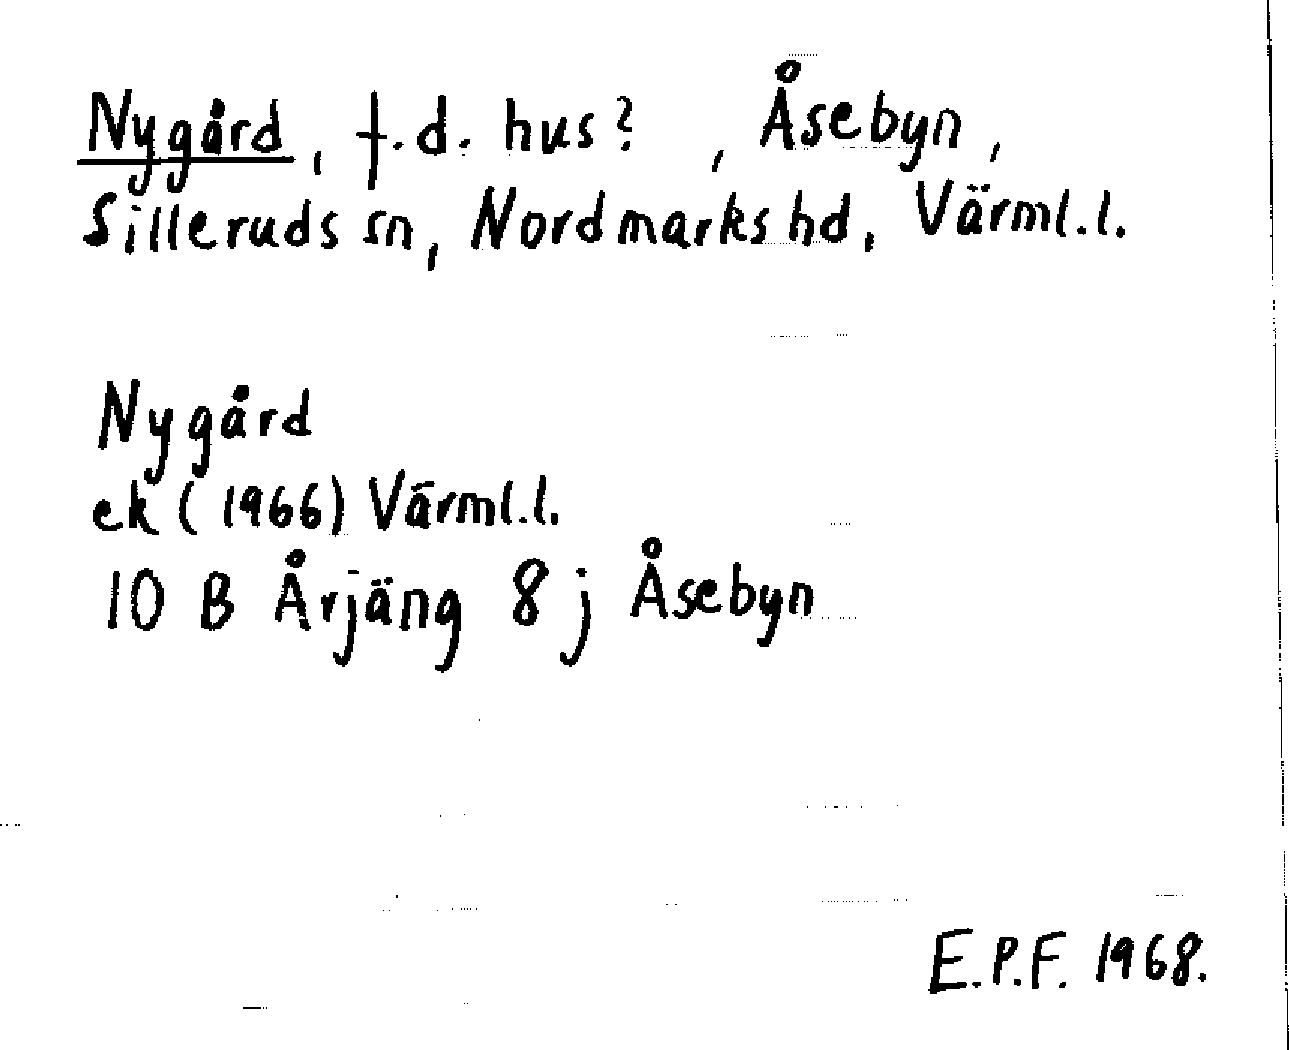 Nygård, f.d. hus? , Åsebyn,
Silleruds sn, Nordmarks hd, Värml.l.
Nygård
ek (1966) Värml.l.
10 B Årjäng 8 j Åsebyn
E.P.F. 1968.